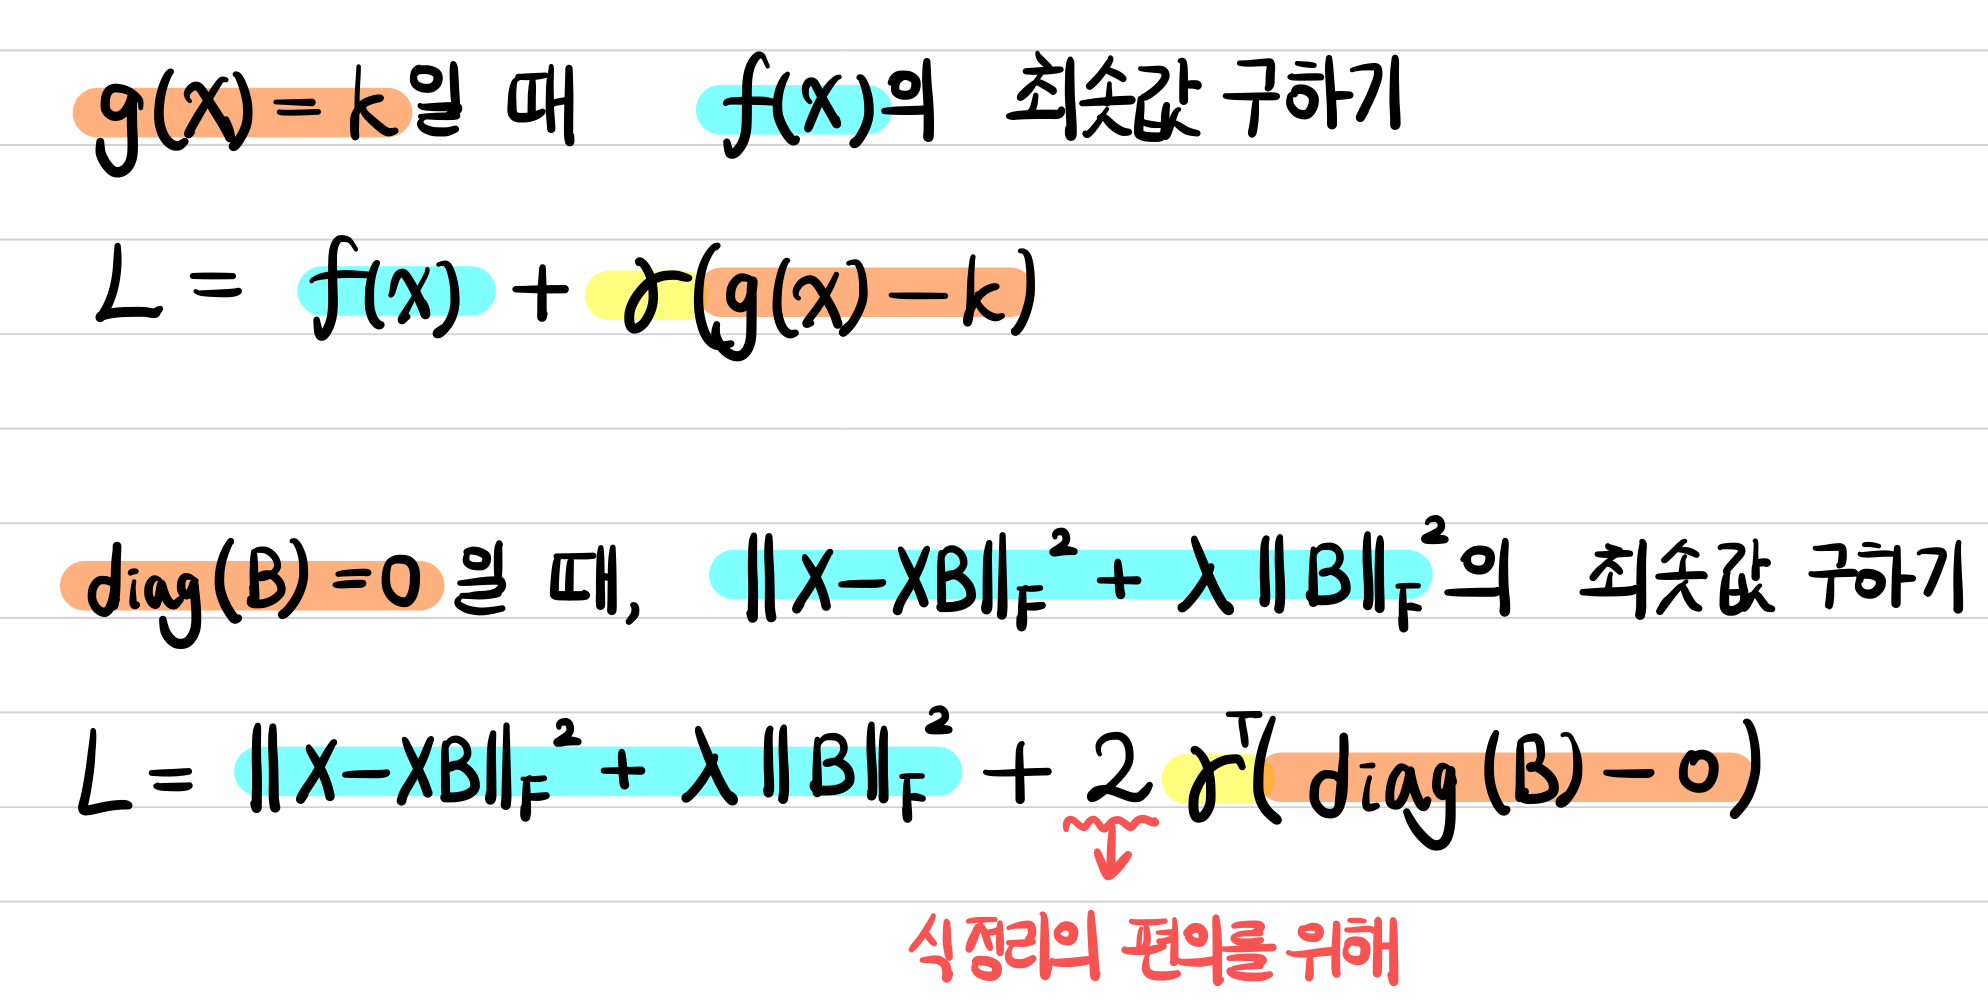 g(x) = k일 때 f(x)의 최솟값 구하기
L = f(x) + γ(g(x) - k)
diag(B) = 0 일 때, ||X-XB||_F^2 + λ||B||_F^2의 최솟값 구하기
L = ||X-XB||_F^2 + λ||B||_F^2 + 2γ^T(diag(B) - 0)
식정리의 편의를 위해